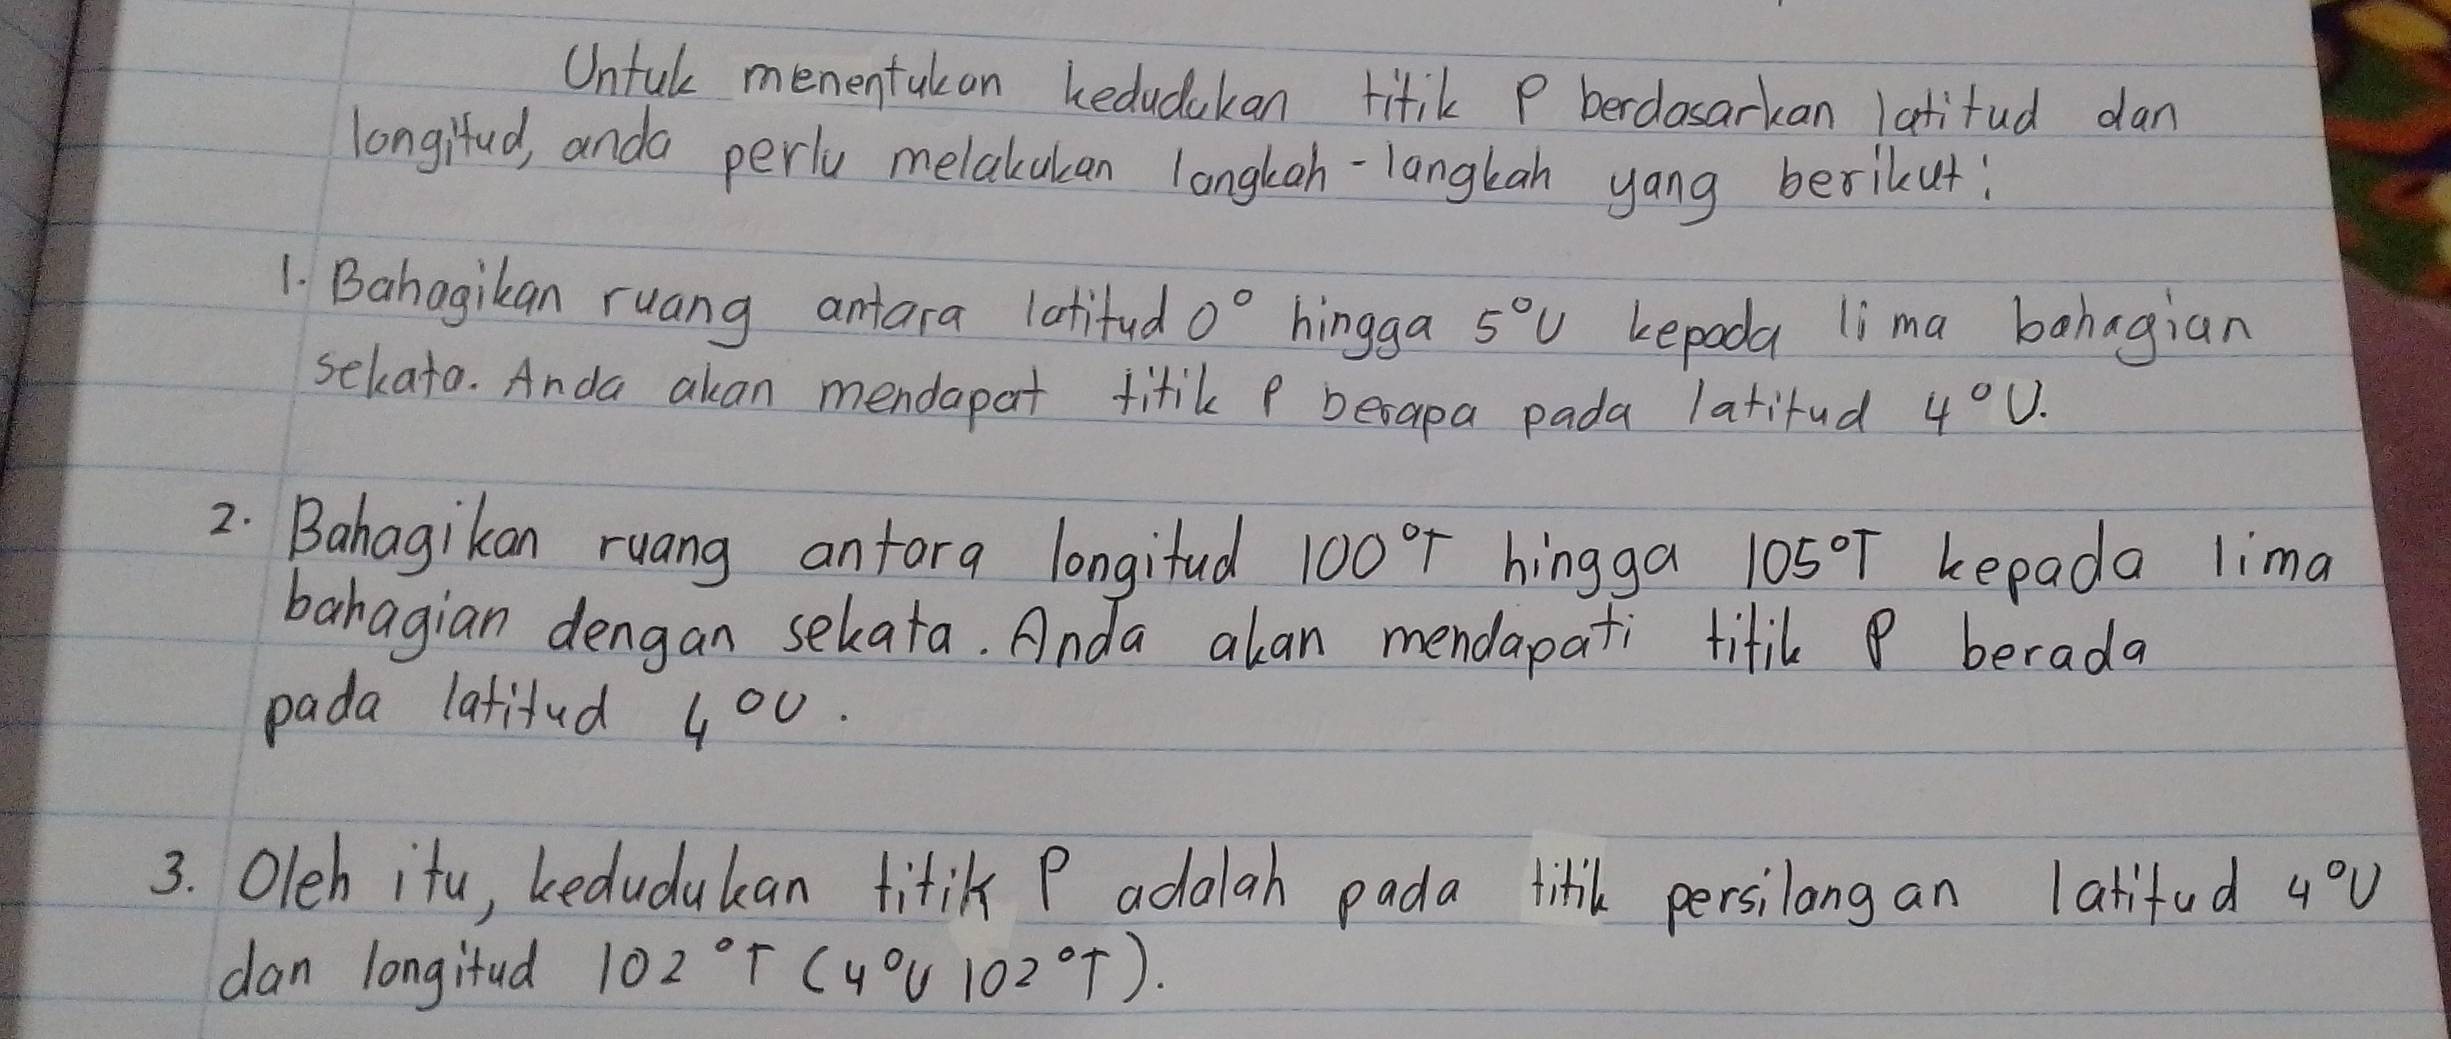 Untuk menentukan kedudukan titik P berdasarkan latitud dan
longitud, anda perlu melakukan langkah-langkah yang berikut:
1. Bahagikan ruang antara latitud 0° hingga 5°U kepada lima bahagian
sekata. Anda akan mendapat titik P berapa pada latitud 4°U.
2. Bahagikan ruang antara longitud 100°T hingga 105°T kepada lima
bahagian dengan sekata. Anda akan mendapati titik P berada
pada latitud 4°U.
3. Oleh itu, kedudukan titik P adalah pada titik persilangan latitud 4°U
dan longitud 102°T (4°U 102°T).